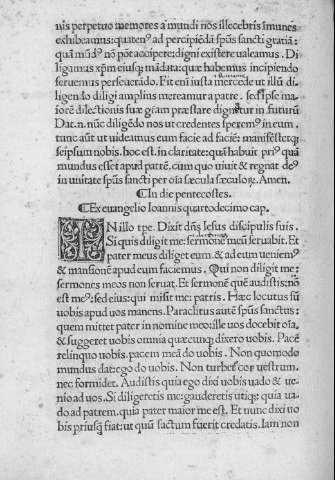 nis perpetuo memores a mundi nos illecebris imunes
exhibeamus: quatenꝰ ad percipiēdā spūs sancti gratiā:
quā mūdꝰ nō pōt accipere: digni existere ualeamus. Di
ligamus xp̄m eiusq; mādata: quæ habemus incipiendo
seruemus perseuerādo. Fit eni iusta mercede ut illū di-
ligendo diligi amplius mereamur a patre. sed & ipse ma
iorē dilectionis suæ gr̄am præstare dignetur in futurū
Dat. n. nūc diligēdo nos ut credentes speremꝰ in eum.
tunc aūt ut uideamus eum facie ad faciē: manifestetq;
seipsum nobis. hoc est. in claritate: quā habuit priꝰ quā
mundus esset apud patrē. cum quo uiuit & regnat deꝰ
in unitate spūs sancti per oīa sæcula sæculoꝝ. Amen.
¶In die pentecostes.
¶Ex euangelio Ioannis quartodecimo cap.
IN illo tp̄e. Dixit dn̄s Iesus discipulis suis.
Si quis diligit me: sermonē meū seruabit. Et
pater meus diliget eum. & ad eum ueniemꝰ
& mansionē apud eum faciemus. Qui non diligit me:
sermones meos non seruat. Et sermonē quē audistis: nō
est meꝰ: sed eius: qui misit me: patris. Hæc locutus sū
uobis apud uos manens. Paraclitus autē spūs sanctus:
quem mittet pater in nomine meo: ille uos docebit oīa,
& suggeret uobis omnia quæcunq; dixero uobis. Pacē
relinquo uobis. pacem meā do uobis. Non quomodo
mundus dat: ego do uobis. Non turbetꝰ cor uestrum.
nec formidet. Audistis quia ego dixi uobis uado & ue-
nio ad uos. Si diligeretis me: gauderetis utiq; quia ua-
do ad patrem. quia pater maior me est. Et nunc dixi uo
bis priusq̄ fiat: ut quū factum fuerit credatis. Iam non